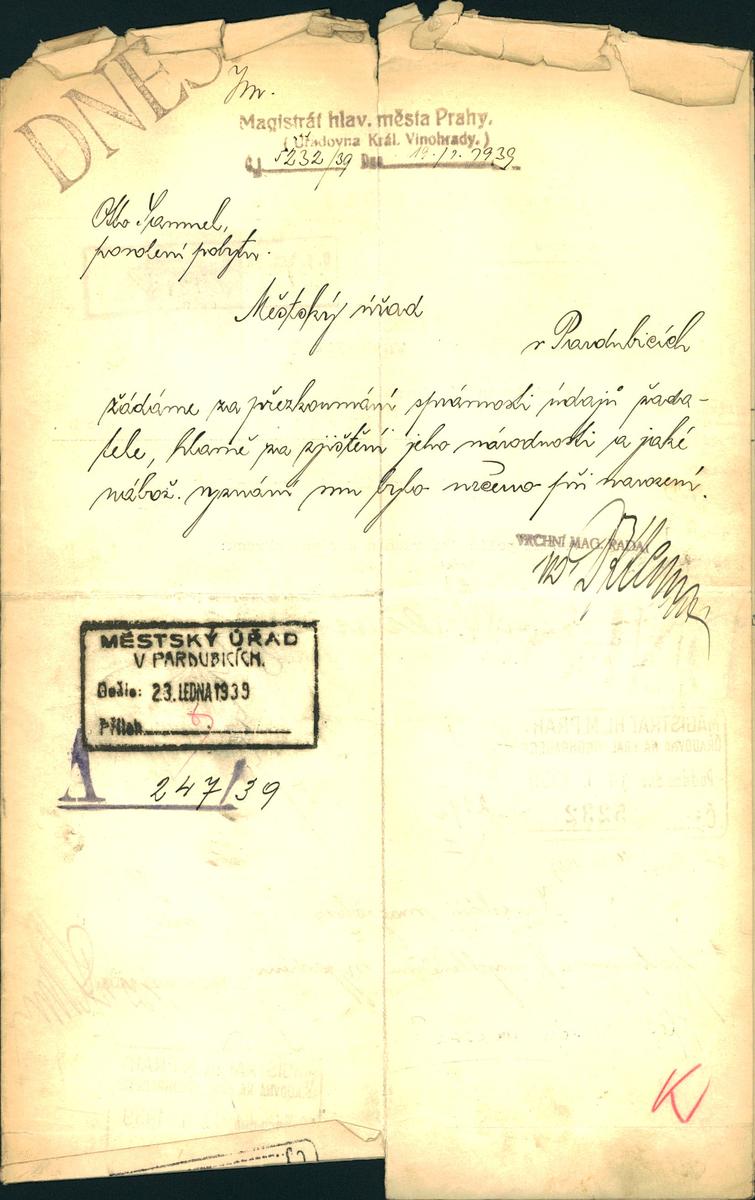 DNES
Magistrát hlav. města Prahy.
(Úřadovna Král. Vinohrady.)
Č.j. 5232/39 Dne 19./1. 1939
Otto Sammel,
povolení pobytu.
Městský úřad
v Pardubicích
žádáme za přezkoumání správnosti údajů žada-
tele, hlavně za zjištění jeho národnosti a jaké
nábož. vyznání mu bylo určeno při narození.
VRCHNÍ MAG. RADA:
MĚSTSKÝ ÚŘAD
V PARDUBICÍCH.
Došlo: 23. LEDNA 1939
Příloh 5
A 247/39
K